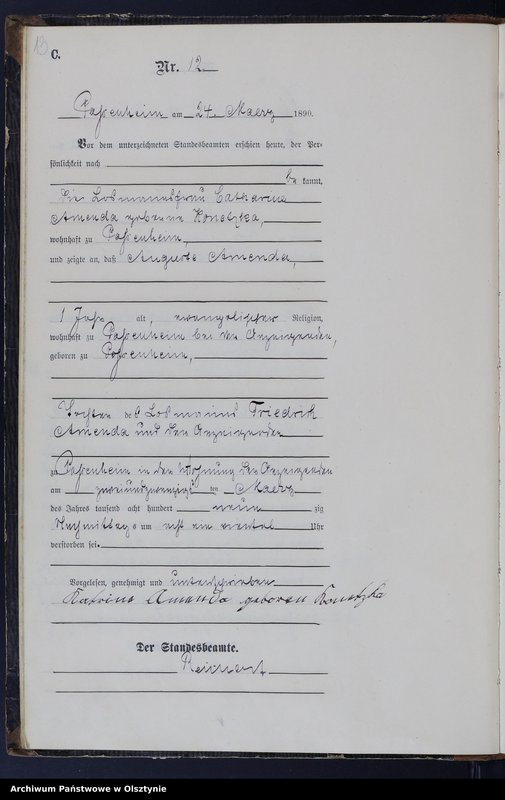 13
C.
Nr. 12.
Passenheim am 24. Maerz 1890.
Vor dem unterzeichneten Standesbeamten erschien heute, der Per-
sönlichkeit nach
be kannt,
die Losmannsfrau Catharina
Amenda geborene Konetzka,
wohnhaft zu Passenheim,
und zeigte an, daß Auguste Amenda,
1 Jahr alt, evangelischer Religion,
wohnhaft zu Passenheim bei der Anzeigenden,
geboren zu Passenheim,
Tochter des Losmanns Friedrich
Amenda und der Anzeigenden
zu Passenheim in der Wohnung der Anzeigenden
am zweiundzwanzigsten Maerz
des Jahres tausend acht hundert neun zig
Nachmittags um acht ein viertel Uhr
verstorben sei.
Vorgelesen, genehmigt und unterschrieben
Katrine Amenda geboren Konetzka
Der Standesbeamte.
Reichert
Archiwum Państwowe w Olsztynie